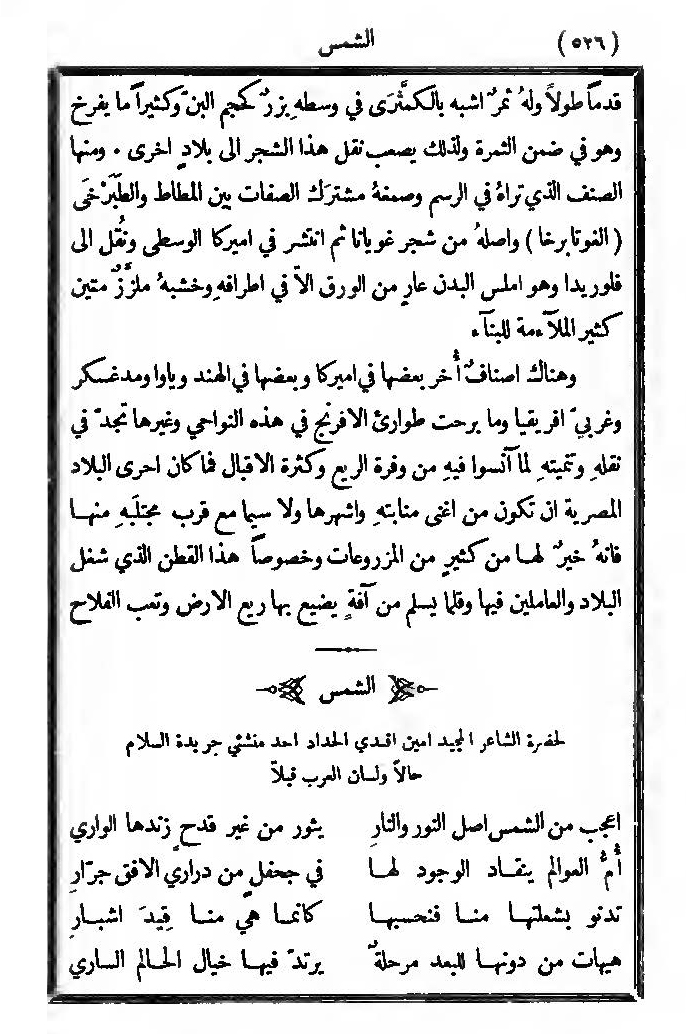 (٥٢٦) الشمس
قدماً طولاً ولهُ ثمرٌ اشبه بالكمَّثرَى في وسطهِ بزرٌ كحجم البنّ وكثيراً ما يفرخ
وهو في ضمن الثمرة ولذلك يصعب نقل هذا الشجر الى بلادٍ اخرى . ومنها
الصنف الذي تراهُ في الرسم وصمغهُ مشترك الصفات بين المطاط والطَبَرْخَى
( الغوتابرخا ) واصلهُ من شجر غويانا ثم انتشر في اميركا الوسطى ونُقل الى
فلوريدا وهو املس البدن عارٍ من الورق الاّ في اطرافهِ وخشبهُ ملزَّزٌ متين
كثير الملآءمة للبنآء
وهناك اصنافٌ أُخر بعضها في اميركا وبعضها في الهند وياوا ومدغسكر
وغربيّ افريقيا وما برحت طوارئ الافرنج في هذه النواحي وغيرها تجدّ في
نقلهِ وتنميتهِ لما آنسوا فيهِ من وفرة الريع وكثرة الاقبال فما كان احرى البلاد
المصرية ان تكون من اغنى منابتهِ واشهرها ولا سيما مع قرب مجتلَبهِ منها
فانهُ خيرٌ لها من كثيرٍ من المزروعات وخصوصاً هذا القطن الذي شغل
البلاد والعاملين فيها وقلما يسلم من آفةٍ يضيع بها ريع الارض وتعب الفلاح
الشمس
لحضرة الشاعر المجيد امين افندي الحداد احد منشئي جريدة السلام
حالاً ولسان العرب قبلاً
اعجب من الشمس اصل النور والنارِ يثور من غير قدحٍ زندها الواري
أُمُّ العوالم ينقاد الوجود لها في جحفلٍ من دراري الافق جرّارِ
تدنو بشعلتها منا فنحسبها كانما هي منا قِيدَ اشبارِ
هيهات من دونها للبعد مرحلةٌ يرتدّ فيها خيال الحالم الساري